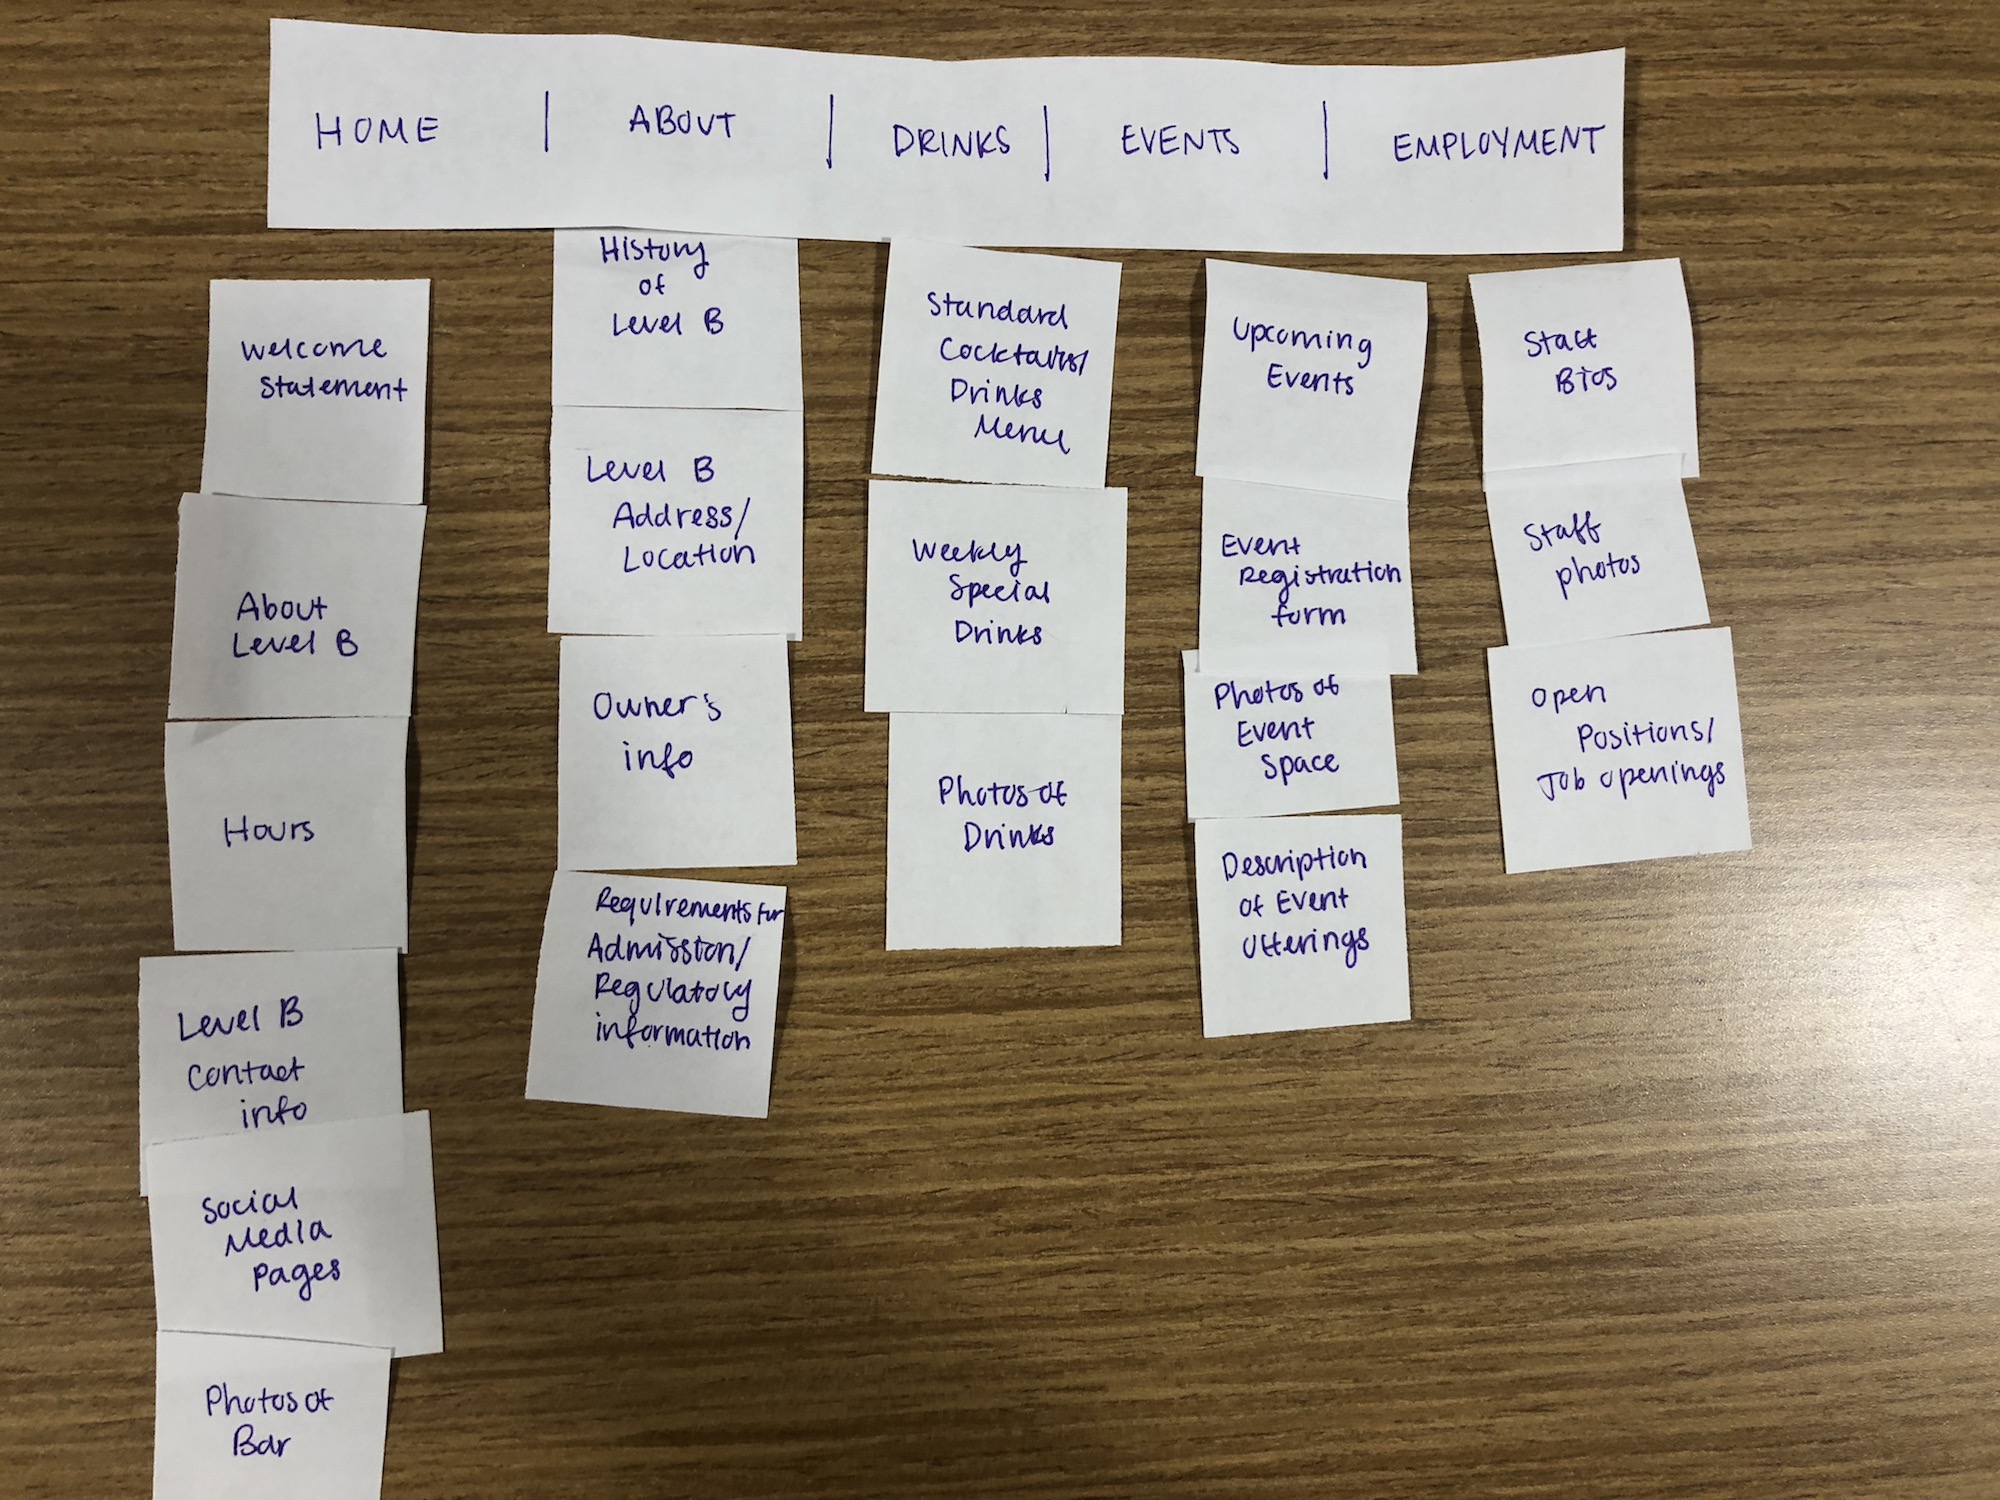 HOME | ABOUT | DRINKS | EVENTS | EMPLOYMENT
Welcome
Statement
About
Level B
Hours
Level B
Contact
info
Social
Media
Pages
Photos of
Bar
History
of
Level B
Level B
Address/
Location
Owner's
info
Requirements for
Admission/
Regulatory
information
Standard
Cocktails/
Drinks
Menu
Weekly
Special
Drinks
Photos of
Drinks
Upcoming
Events
Event
Registration
form
Photos of
Event
Space
Description
of Event
Offerings
Staff
Bios
Staff
photos
Open
Positions/
Job openings